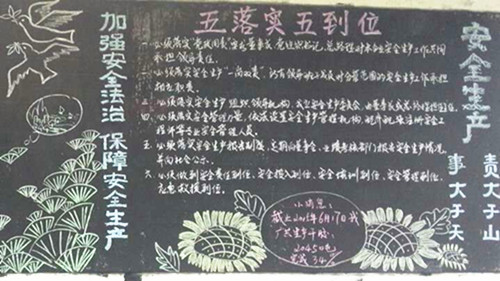 加强安全法治 保障安全生产
五落实五到位
一、必须落实"党政同责"要求,董事长、党组织书记、总经理对本企业安全生产工作共同
承担领导责任。
二、必须落实安全生产"一岗双责",所有领导班子成员对分管范围内安全生产工作承担
相应职责。
三、必须落实安全生产组织领导机构,成立安全生产委员会,由董事长或总经理担任主任。
四、必须落实安全管理力量,依法设置安全生产管理机构,配齐配强注册安全工
程师等专业安全管理人员。
五、必须落实安全生产报告制度,定期向董事会、业绩考核部门报告安全生产情况,
并向社会公示。
六、必须做到安全责任到位、安全投入到位、安全培训到位、安全管理到位、
应急救援到位。
小消息:
截止2015年6月17日我
厂共生产干胶
2045.04吨
完成34%
安全生产
责大于山
事大于天